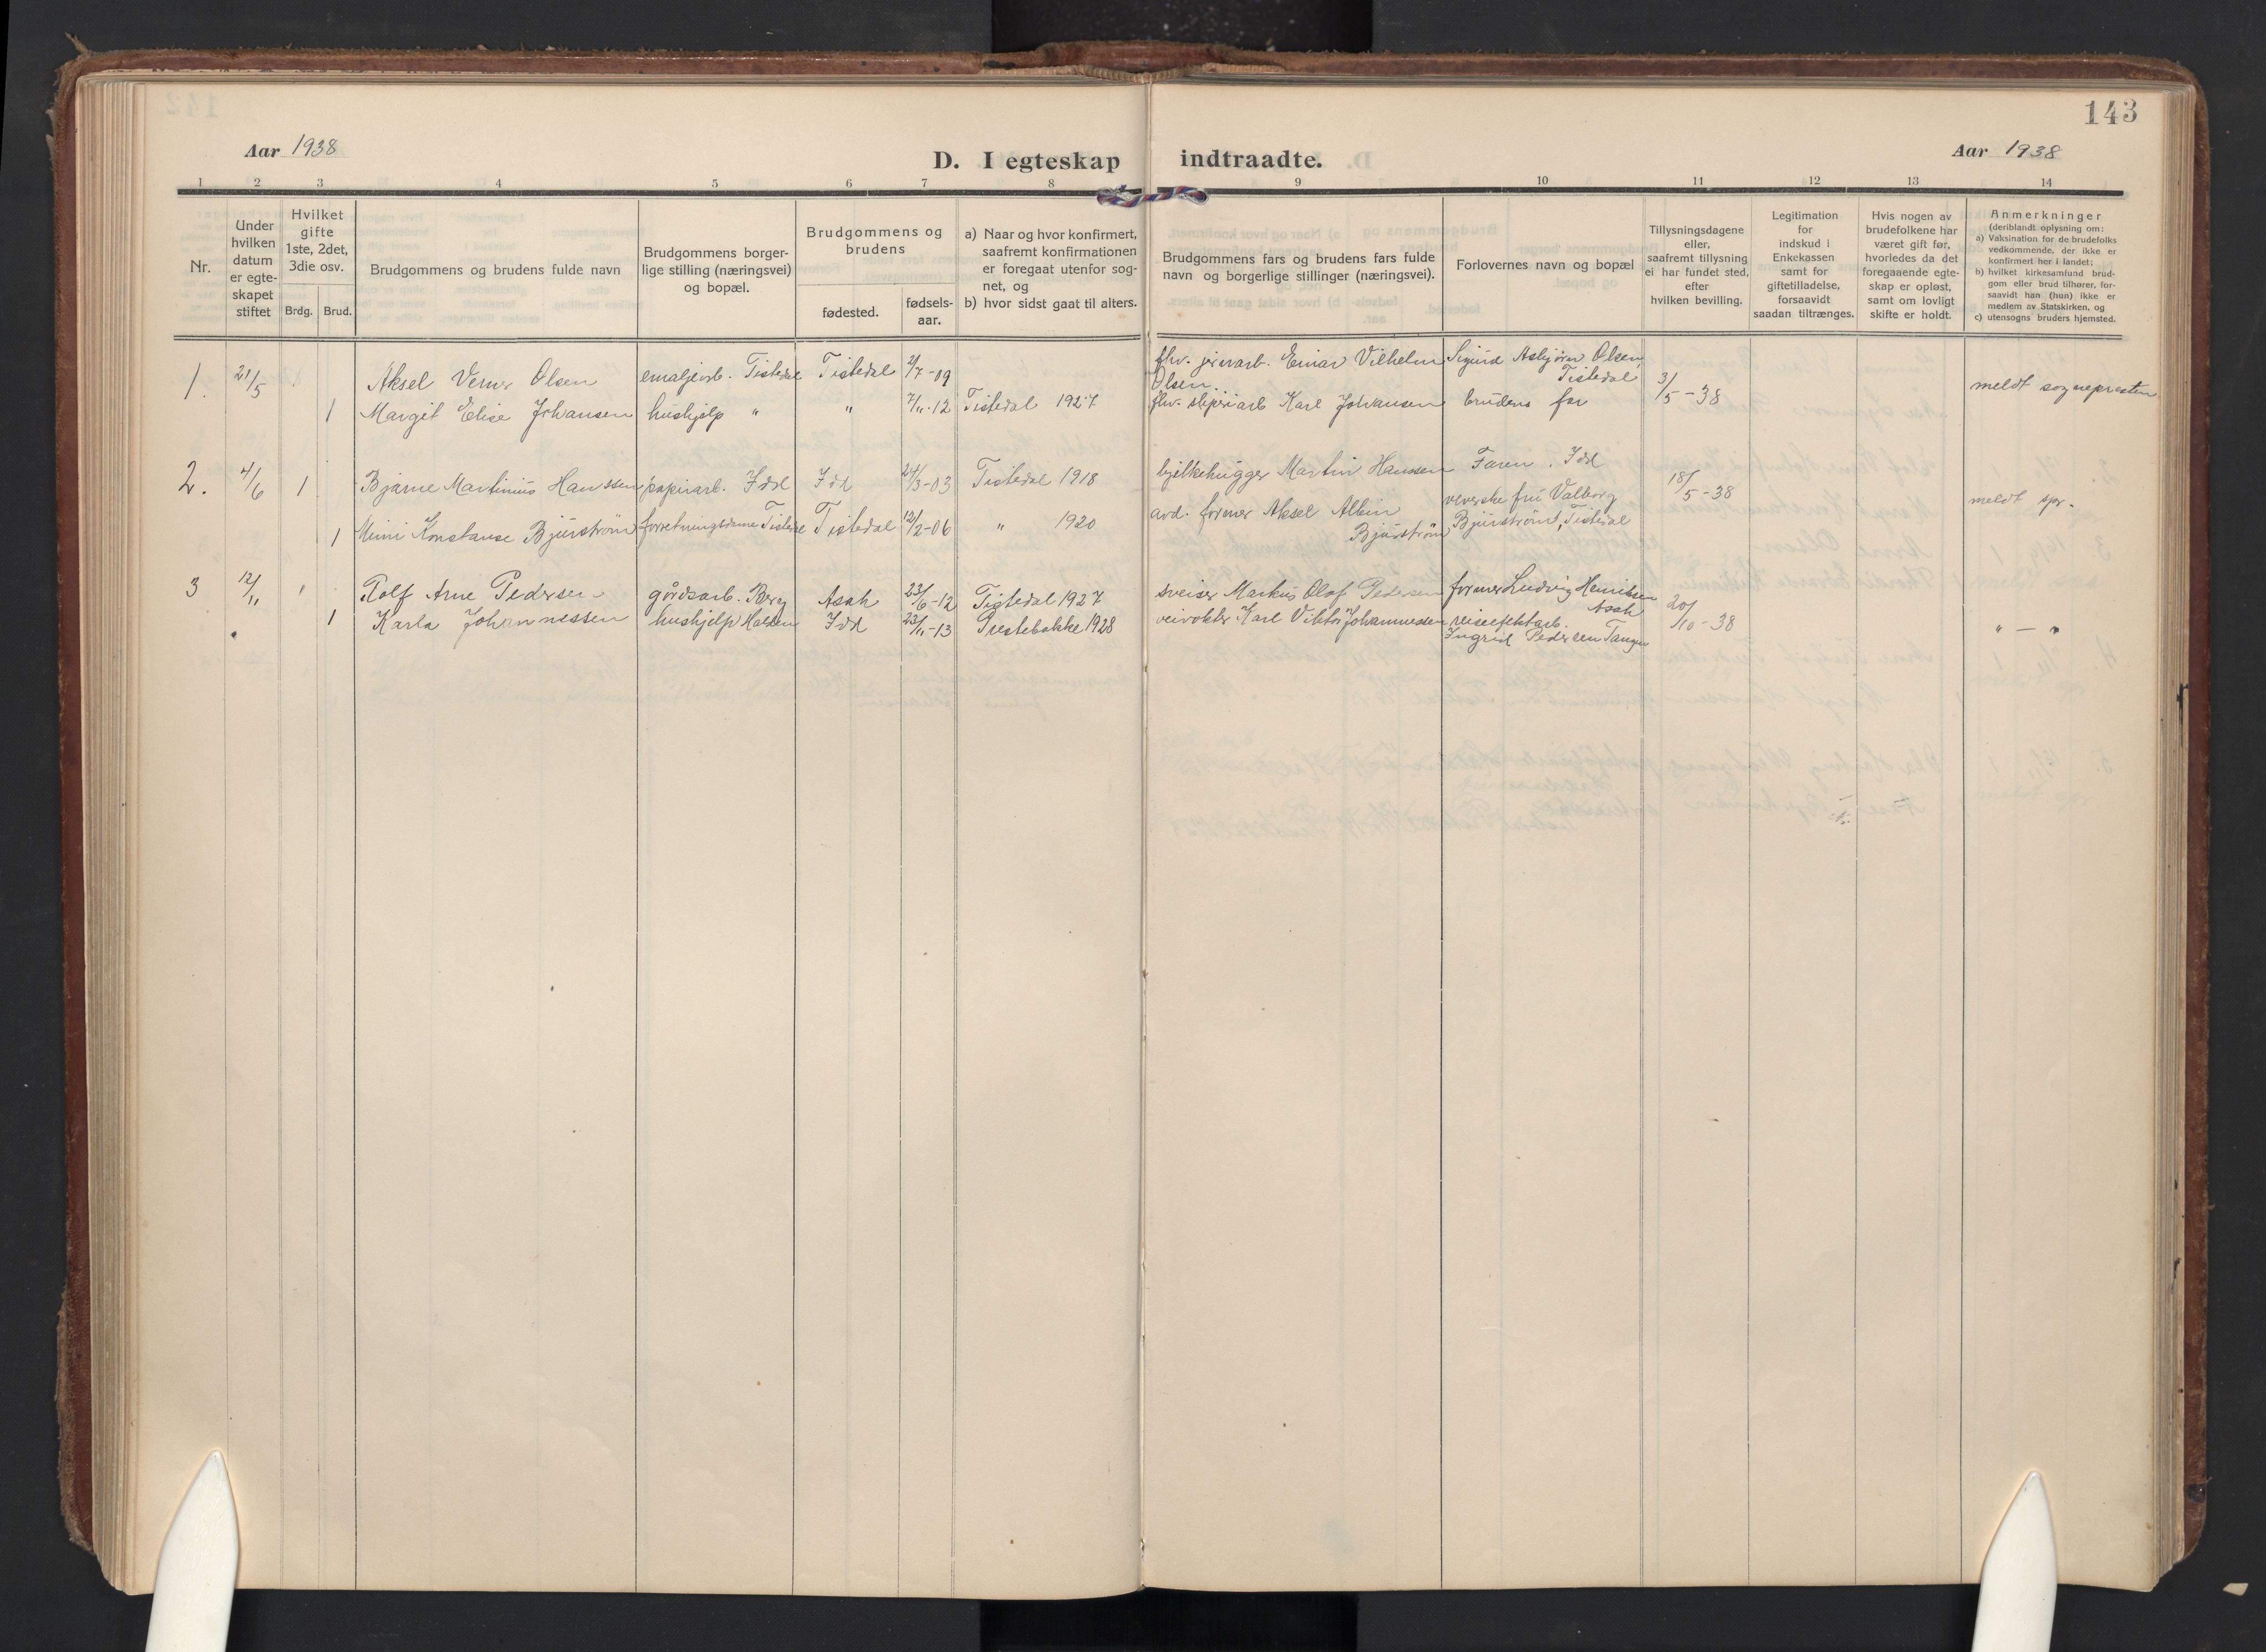 143
Aar 1938
D. I egteskap indtraadte.
Aar 1938
1 2 3 4 5 6 7 8 9 10 11 12 13 14
Nr.
Under hvilken datum er egte-skapet stiftet
Hvilket gifte 1ste, 2det, 3die osv.
Brdg. Brud.
Brudgommens og brudens fulde navn
Brudgommens borger-lige stilling (næringsvei) og bopæl.
Brudgommens og brudens
fødested.
fødsels-aar.
a) Naar og hvor konfirmert, saafremt konfirmationen er foregaat utenfor sog-net, og
b) hvor sidst gaat til alters.
Brudgommens fars og brudens fars fulde navn og borgerlige stillinger (næringsvei).
Forlovernes navn og bopæl
Tillysningsdagene eller, saafremt tillysning ei har fundet sted, efter hvilken bevilling.
Legitimation for indskud i Enkekassen samt for giftetilladelse, forsaavidt saadan tiltrænges.
Hvis nogen av brudefolkene har været gift før, hvorledes da det foregaaende egte-skap er opløst, samt om lovligt skifte er holdt.
Anmerkninger
(deriblandt oplysning om:
a) Vaksination for de brudefolks vedkommende, der ikke er konfirmert her i landet;
b) hvilket kirkesamfund brud-gom eller brud tilhører, for-saavidt han (hun) ikke er medlem av Statskirken, og
c) utensogns bruders hjemsted.
1. 21/5 1 Aksel Verner Olsen emaljearb. Tistedal Tistedal 2/7-09 fhv. jernarb. Einar Vilhelm Olsen. Sigurd Asbjørn Olsen, Tistedal 3/5-38 meldt sognepresten
1 Margit Elise Johansen hushjelp " " 7/11-12 Tistedal 1927 fhv. sliperiarb Karl Johansen brudens far
2. 4/6 1 Bjarne Martinius Hanssen papirarb. Idd Idd 24/3-03 Tistedal 1918 bjelkehugger Martin Hanssen Faren, Idd 18/5-38 meldt spr.
1 Mimi Konstanse Bjurstrøm forretningsdame Tistedal Tistedal 12/2-06 " 1920 avd. former Aksel Albin Bjurstrøm veverske fru Valborg Bjurstrøm, Tistedal
3 12/11 1 Rolf Arne Pedersen gårdsarb. Berg Asak 23/6-12 Tistedal 1927 sveiser Markus Olaf Pedersen former Ludvig Henriksen Asak 20/10-38 " — "
1 Karla Johannessen hushjelp Halden Idd 22/11-13 Prestebakke 1928 veivokter Karl Viktor Johannessen reiseeffektarb. Ingrid Pedersen Tangen